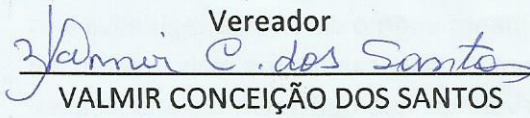 Vereador
Valmir C. dos Santos
VALMIR CONCEIÇÃO DOS SANTOS